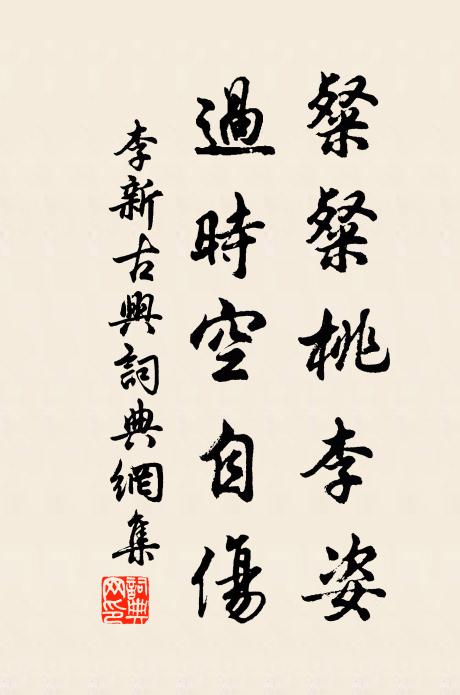 粲粲桃李姿
過時空自傷
李新古興詞典網集
詞典網印